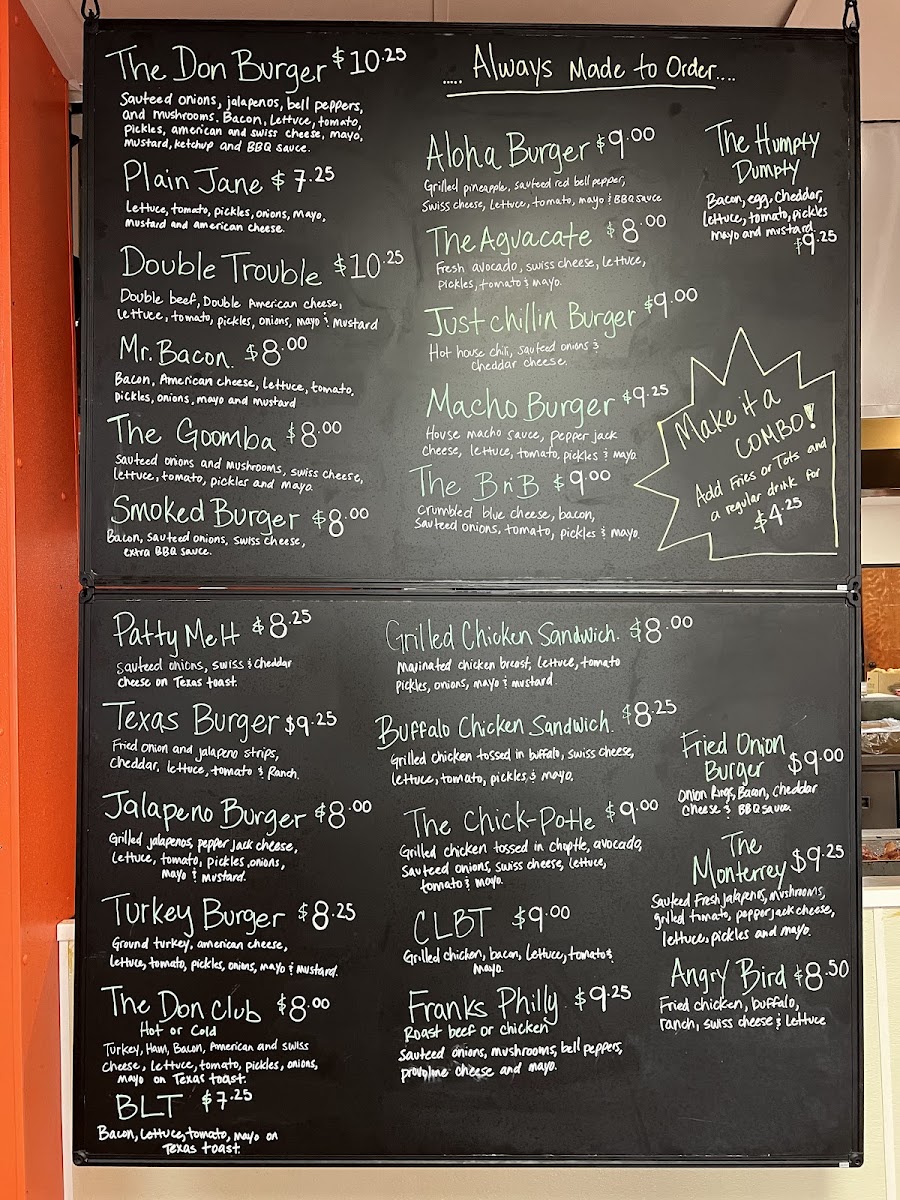 The Don Burger $10.25
Sauteed onions, jalapenos, bell peppers,
and mushrooms. Bacon, Lettuce, tomato,
pickles, american and swiss cheese, mayo,
mustard, ketchup and BBQ sauce.
Plain Jane $7.25
Lettuce, tomato, pickles, onions, mayo,
mustard and american cheese.
Double Trouble $10.25
Double beef, Double American cheese,
lettuce, tomato, pickles, onions, mayo & mustard
Mr. Bacon $8.00
Bacon, American cheese, lettuce, tomato,
pickles, onions, mayo and mustard
The Goomba $8.00
Sauteed onions and mushrooms, swiss cheese,
lettuce, tomato, pickles and mayo.
Smoked Burger $8.00
Bacon, sauteed onions, swiss cheese,
extra BBQ sauce.
..... Always Made to Order....
Aloha Burger $9.00
Grilled pineapple, sauteed red bell pepper,
Swiss cheese, lettuce, tomato, mayo & BBQ sauce
The Aguacate $8.00
Fresh avocado, swiss cheese, lettuce,
Pickles, tomato & mayo.
Just chillin Burger $9.00
Hot house chili, sauteed onions &
cheddar cheese.
Macho Burger $9.25
House macho sauce, pepper jack
cheese, lettuce, tomato, pickles & mayo
The BnB $9.00
Crumbled blue cheese, bacon,
sauteed onions, tomato, pickles & mayo.
The Humpty
Dumpty
Bacon, egg, cheddar,
lettuce, tomato, pickles
mayo and mustard
$9.25
Make it a
COMBO!
Add Fries or Tots and
a regular drink for
$4.25
Patty Melt $8.25
Sauteed onions, swiss & cheddar
cheese on Texas toast.
Texas Burger $9.25
Fried onion and jalapeno strips,
Cheddar, lettuce, tomato & Ranch.
Jalapeno Burger $8.00
Grilled jalapenos, pepper jack cheese,
lettuce, tomato, pickles, onions,
mayo & mustard.
Turkey Burger $8.25
Ground turkey, american cheese,
lettuce, tomato, pickles, onions, mayo & mustard.
The Don Club $8.00
Hot or Cold
Turkey, Ham, Bacon, American and swiss
cheese, lettuce, tomato, pickles, onions,
mayo on Texas toast.
BLT $7.25
Bacon, Lettuce, tomato, mayo on
Texas toast.
Grilled Chicken Sandwich. $8.00
Marinated chicken breast, lettuce, tomato
pickles, onions, mayo & mustard
Buffalo Chicken Sandwich. $8.25
Grilled chicken tossed in buffalo, swiss cheese,
lettuce, tomato, pickles & mayo.
The Chick-Potle $9.00
Grilled chicken tossed in choptle, avocado,
sauteed onions, swiss cheese, lettuce,
tomato & mayo.
CLBT $9.00
Grilled chicken, bacon, lettuce, tomato &
mayo.
Franks Philly $9.25
Roast beef or chicken
Sauteed onions, mushrooms, bell peppers,
provolone cheese and mayo.
Fried Onion
Burger $9.00
Onion Rings, Bacon, cheddar
cheese & BBQ sauce.
The
Monterrey $9.25
Sauteed Fresh jalapenos, mushrooms,
grilled tomato, pepper jack cheese,
lettuce, pickles and mayo.
Angry Bird $8.50
Fried chicken, buffalo,
ranch, swiss cheese & lettuce